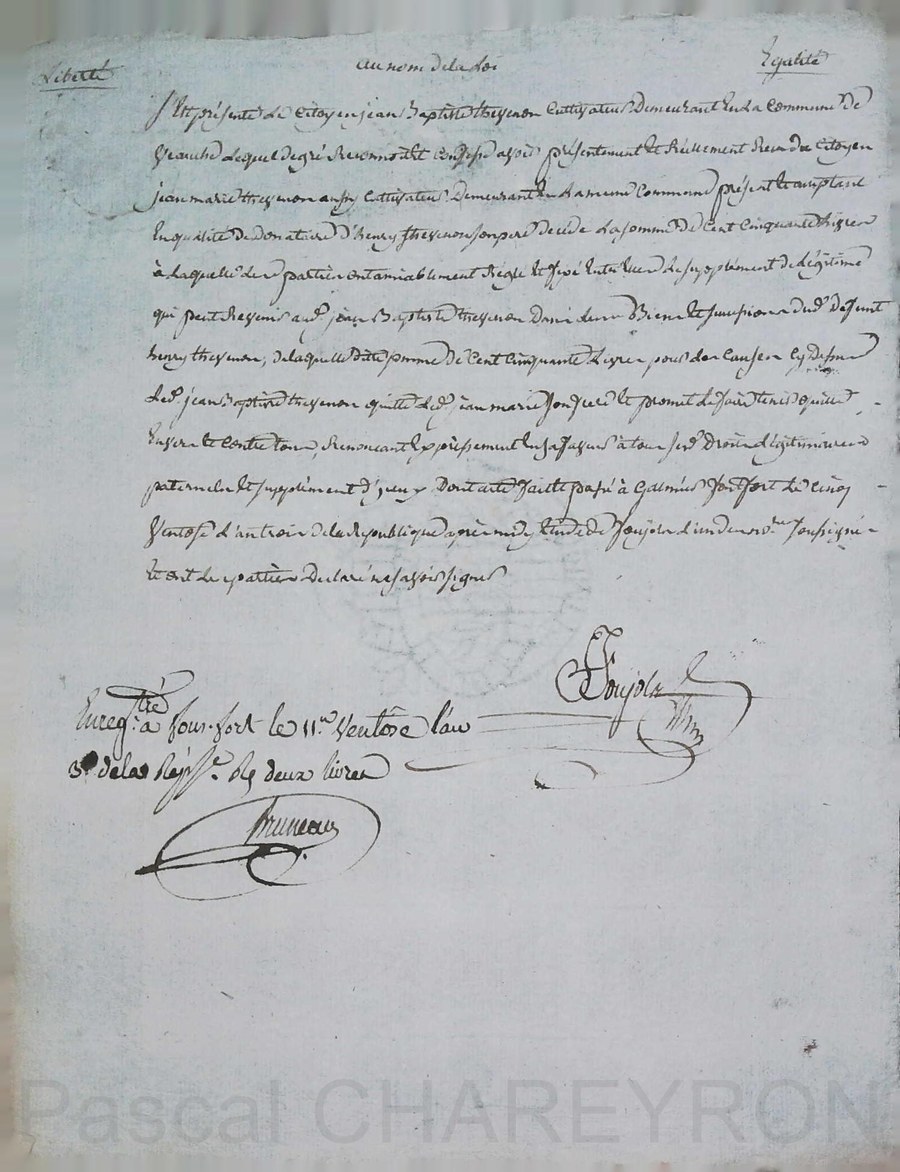 Liberté au nom de la Loi Egalité
S'Est présenté Le Citoyen jean Baptiste thevenon Cultivateur Demeurant En La Commune de
Veauche Lequel de gré Reconnoit Et Confesse avoir présentement Et Réellement Reçu du Citoyen
jean marie thevenon aussy Cultivateur Demeurant En La meme Commune présent Et acceptant
En qualité de donataire D'henry thevenon son pere decédé La somme de Cent Cinquante Livres
à Laquelle Les parties ont amiablement Réglé Et fixé Entr'elles Le supplément de Légitime
qui peut Revenir aud. jean Baptiste thevenon Dans Les Biens Et succession dud. Defunt
henry thevenon, de laquelle ditte somme de Cent Cinquante Livres pour Les Causes Cy dessus
Led. jean Baptiste thevenon quitte Led. jean marie son frere Et promet Le faire tenir quitte
Envers Et Contre tous, Renoncant Expressement En sa faveur à tous ses Droits Légitimaires
paternels Et supplément d'yceux Dont acte fait Et passé à Galmier fontfort Le Cinq
Ventose L'an trois de la Republique après midy Etude de Poujola L'un des no.res soussigné
Et ont Les parties Declaré ne savoir signer
Poujola
Enreg.tré à fons-fort le 11.e Ventôse l'an
3.e de la Rép.e R. deux livres
Bruneau
Pascal CHAREYRON